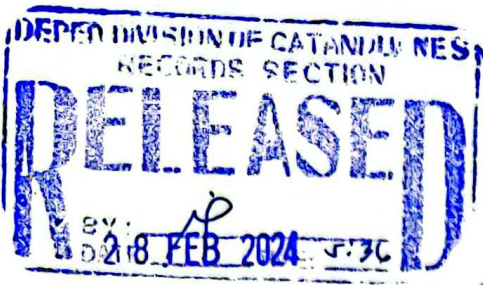 DEPED DIVISION OF CATANDUANES
RECORDS SECTION
RELEASED
BY:
DATE 28 FEB 2024 5:36